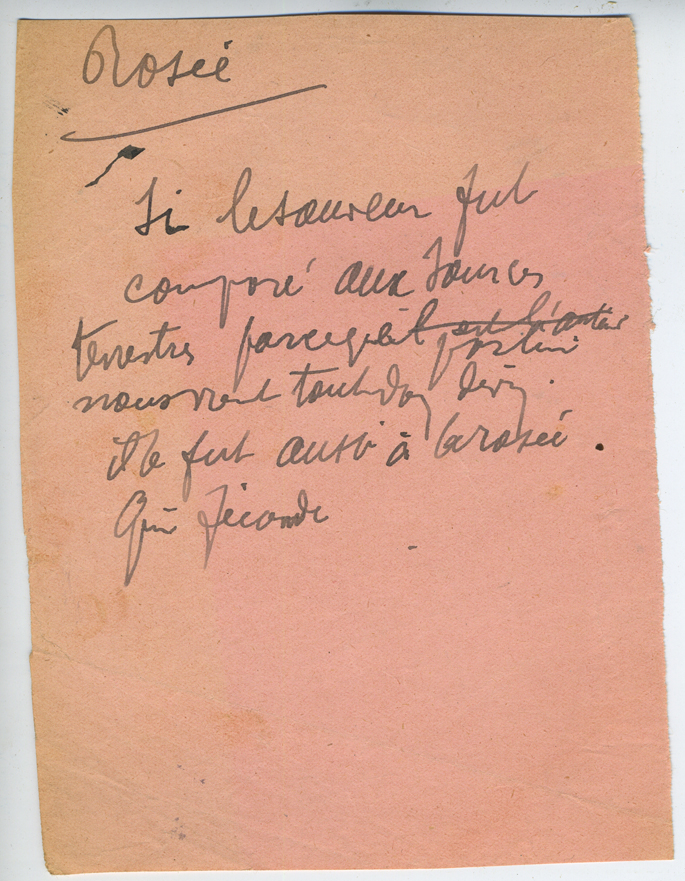 Rosée
Si le sauveur fut
comparé aux sources
terrestres parcequ'il est l'auteur
par lui
nous vient tout don divin.
il le fut aussi à la rosée.
Qui féconde